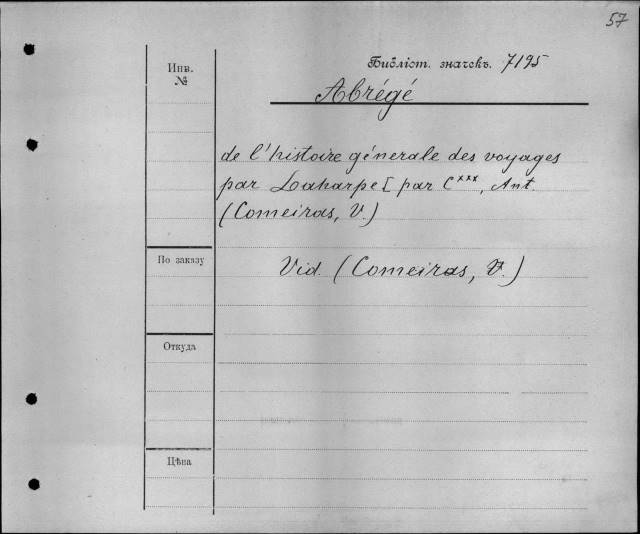 57
Инв.
№
Библіот. значекъ. 7195
Abrégé
de l'histoire génerale des voyages
par Laharpe [ par C***, Ant.
(Comeiras, V.)
По заказу
Vid. (Comeiras, V.)
Откуда
Цѣна